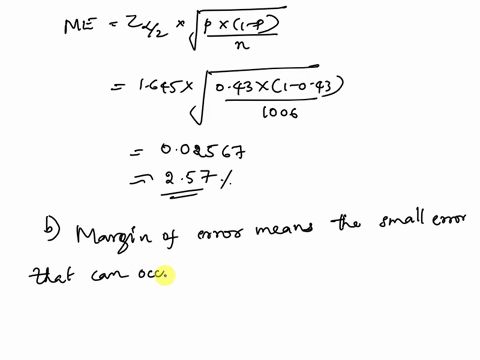 ME = Z α/2 × √(p × (1-p) / n)
= 1.645 × √(0.43 × (1-0.43) / 1006)
= 0.02567
= 2.57 %
b) Margin of error means the small error
that can occ